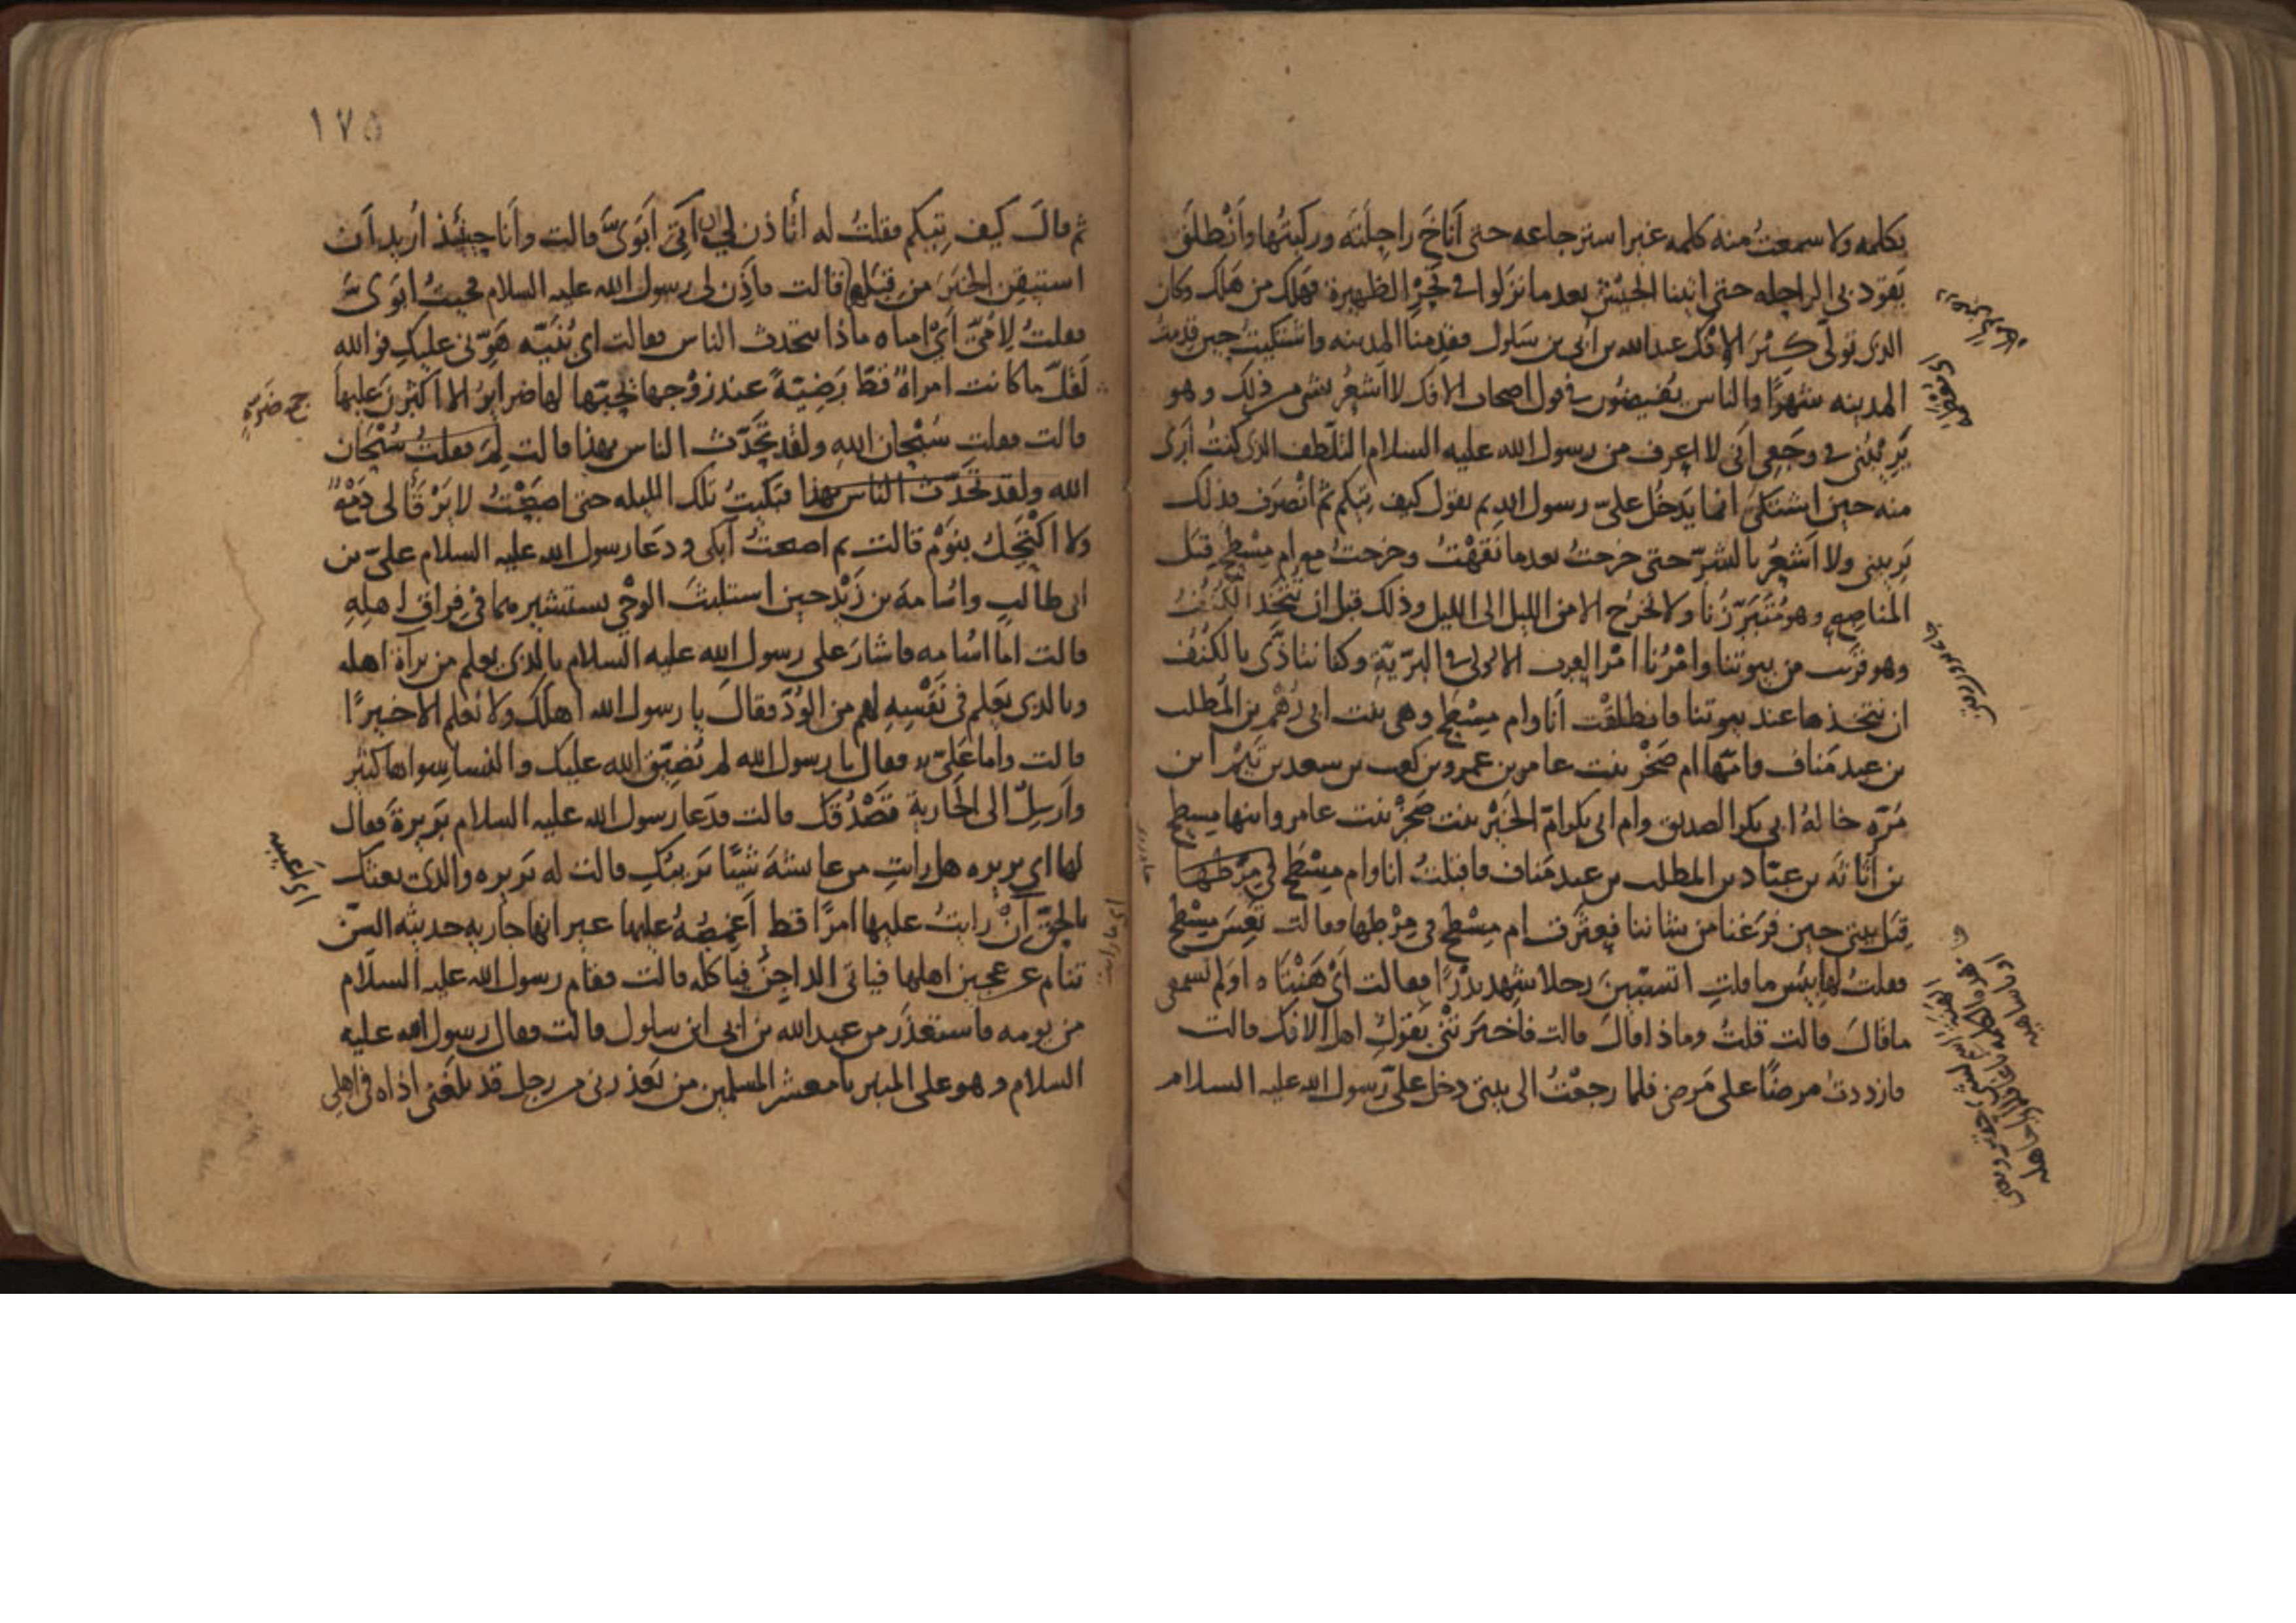 بكلمه ولا سمعتُ منه كلمه غير استرجاعه حتى أَنَاخَ راحِلَتَه وركبتُها وأَنْطلَقَ
يَقود بى الراحله حتى اتينا الجَيْش بعد ما نزلوا فى نَحْرِ الظهيرة فهلك من هَلك وكان
الذى تولّى كِبْرَ الإفك عبد الله بن أُبي بن سَلول فقدِمنا المدينه واشتكيتُ حين قدمتُ
المدينه شهرًا والناس يُفيضون فى قول اصحاب الافك لا اَشعُرُ بشى من ذلك وهو
يَرِيْبُنى فى وجَعى اَنى لا اعرف من رسول الله عليه السلام التلَطف الذى كنتُ أَرَى
منه حين اشتكى انما يَدخُل علىّ رسول الله ثم يقول كيف تِيكم ثم انْصَرف فذلك
يَرِيبنى ولا اَشعُرُ بالشرّ حتى خرجتُ بعد ما نَقَهْتُ وخرجتُ مع ام مِسْطح قبَل
المناصِع وهو مُتَبَرَّزُنا ولا نخرُج الا من الليل الى الليل وذلك قبل ان نتّخِذ الكُنُف
وهو قريب من بيوتنا وامْرُنا امْرُ العرب الاولى فى البَرّيّة وكنا نتاذّى بالكُنُف
ان نتخذها عند بيوتنا فانطلقْت اَنا وام مِسْطح وهى بنت ابى رُهْم بن المُطلب
بن عبد مَناف وامّها ام صَخْر بنت عامر بن عمرو بن كعب بن سعد بن تَيْم ابن
مُرّه خالهُ ابى بكر الصديق وام ابى بكر امّ الخَيْر بنت صَخْر بنت عامر وابنها مسطح
بن اُثَاثَه بن عبّاد بن المطلب بن عبد مَناف فاقبلتُ انا وام مِسْطح فى مِرْطها
قِبَل بيتى حين فرَغنا من شاننا فعثَرت ام مِسْطح فى مِرْطها فقالت تَعِسَ مِسْطح
فقلتُ لها بئس ما قلتِ اتسبّينَ رجلا شهد بَدْرًا فقالت اَىْ هَنْتَاه اولم تسمعى
ما قالَ قالت قلتُ وماذا قال قالت فاخبرَتْنى بقول اهل الافك قالت
فازددتُ مرضًا على مَرضى فلما رجعْتُ الى بيتى دخل علىّ رسول الله عليه السلام
١٧٥
ثم قالَ كيف تِيكم فقلتُ له اتاذن لى ان اٰتى اَبَوَىَّ قالت وأَنا حينئذ أُريد اَن
استيقن الخبَرَ من قِبَلهما قالت فاَذِن لى رسول الله عليه السلام فجئتُ ابَوَىَّ
فقلتُ لِامّى اَىْ امتاه ماذا يتحدث الناس فقالت اى بُنَيّه هَوّنى عليكِ فوالله
لَقَلّ ما كانت امراةٌ قطّ رَضِيّةً عند زوْجها يُحِبّها لها ضرايرُ الا اكثرن عليها
قالت فقلت سُبْحان الله ولقد تحَدّث الناس بهذا قالت لِمَ فقلتُ سُبْحَان
الله ولقد تَحَدّث الناس بهذا فبَكيتُ تلك الليله حتى اصبَحْتُ لا يَرْقَأُ لى دَمْعٌ
ولا اكْتَحِلُ بنَوْم قالت ثم اصبحتُ اَبكى ودعَا رسول الله عليه السلام علىّ بن
ابى طالب واُسامهَ بن زَيْد حين استلبثَ الوحْى يستشيرهما فى فِراق اهلِهِ
قالت امّا اُسامه فاشارَ على رسول الله عليه السلام بالذى يعلم من برآة اهله
وبالذى يَعلم فى نَفْسِهِ لهم من الوُدّ فقالَ يا رسول الله اَهلك ولا نعلم الا خيرًا
قالت واما عَلىّ فقال يا رسول الله لم يُضيّق الله عليك والنسا سِواها كثير
وارسِلْ الى الجَارية تَصْدُقك قالت فدَعا رسول الله عليه السلام بَريرةَ فقال
لها اى بريره هل رايتِ من عايشهَ شيًا يَريبُكِ قالت له بَريره والذى بعثك
بالحقّ اِنْ رايتُ عليها امرًا قط اَغمِصُهُ عليها غير انها جاريه حديثه السِّنّ
تنام عن عجين اهلها فياتى الداجِنُ فياكله قالت فقام رسول الله عليه السلام
من يومه فاستعْذَر من عبد الله بن ابى ابن سلول قالت فقال رسول الله عليه
السلام وهو على المنبر يا معشر المسلمين من يَعذرنى من رجل قد بلغنى اَذاه فى اهلى
جمع ضَرّة
اى اعيبه
اى ما رايت